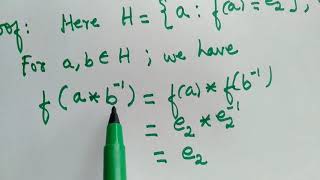 oof: Here H = {a : f(a) = e₂},
For a, b ∈ H ; we have
f(a * b⁻¹) = f(a) * f(b⁻¹)
= e₂ * e₂⁻¹
= e₂